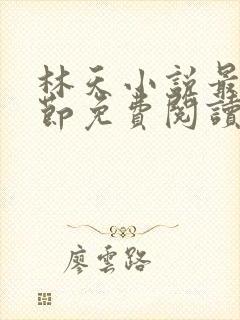 林天小説最
節免費閱讀
廖雲路